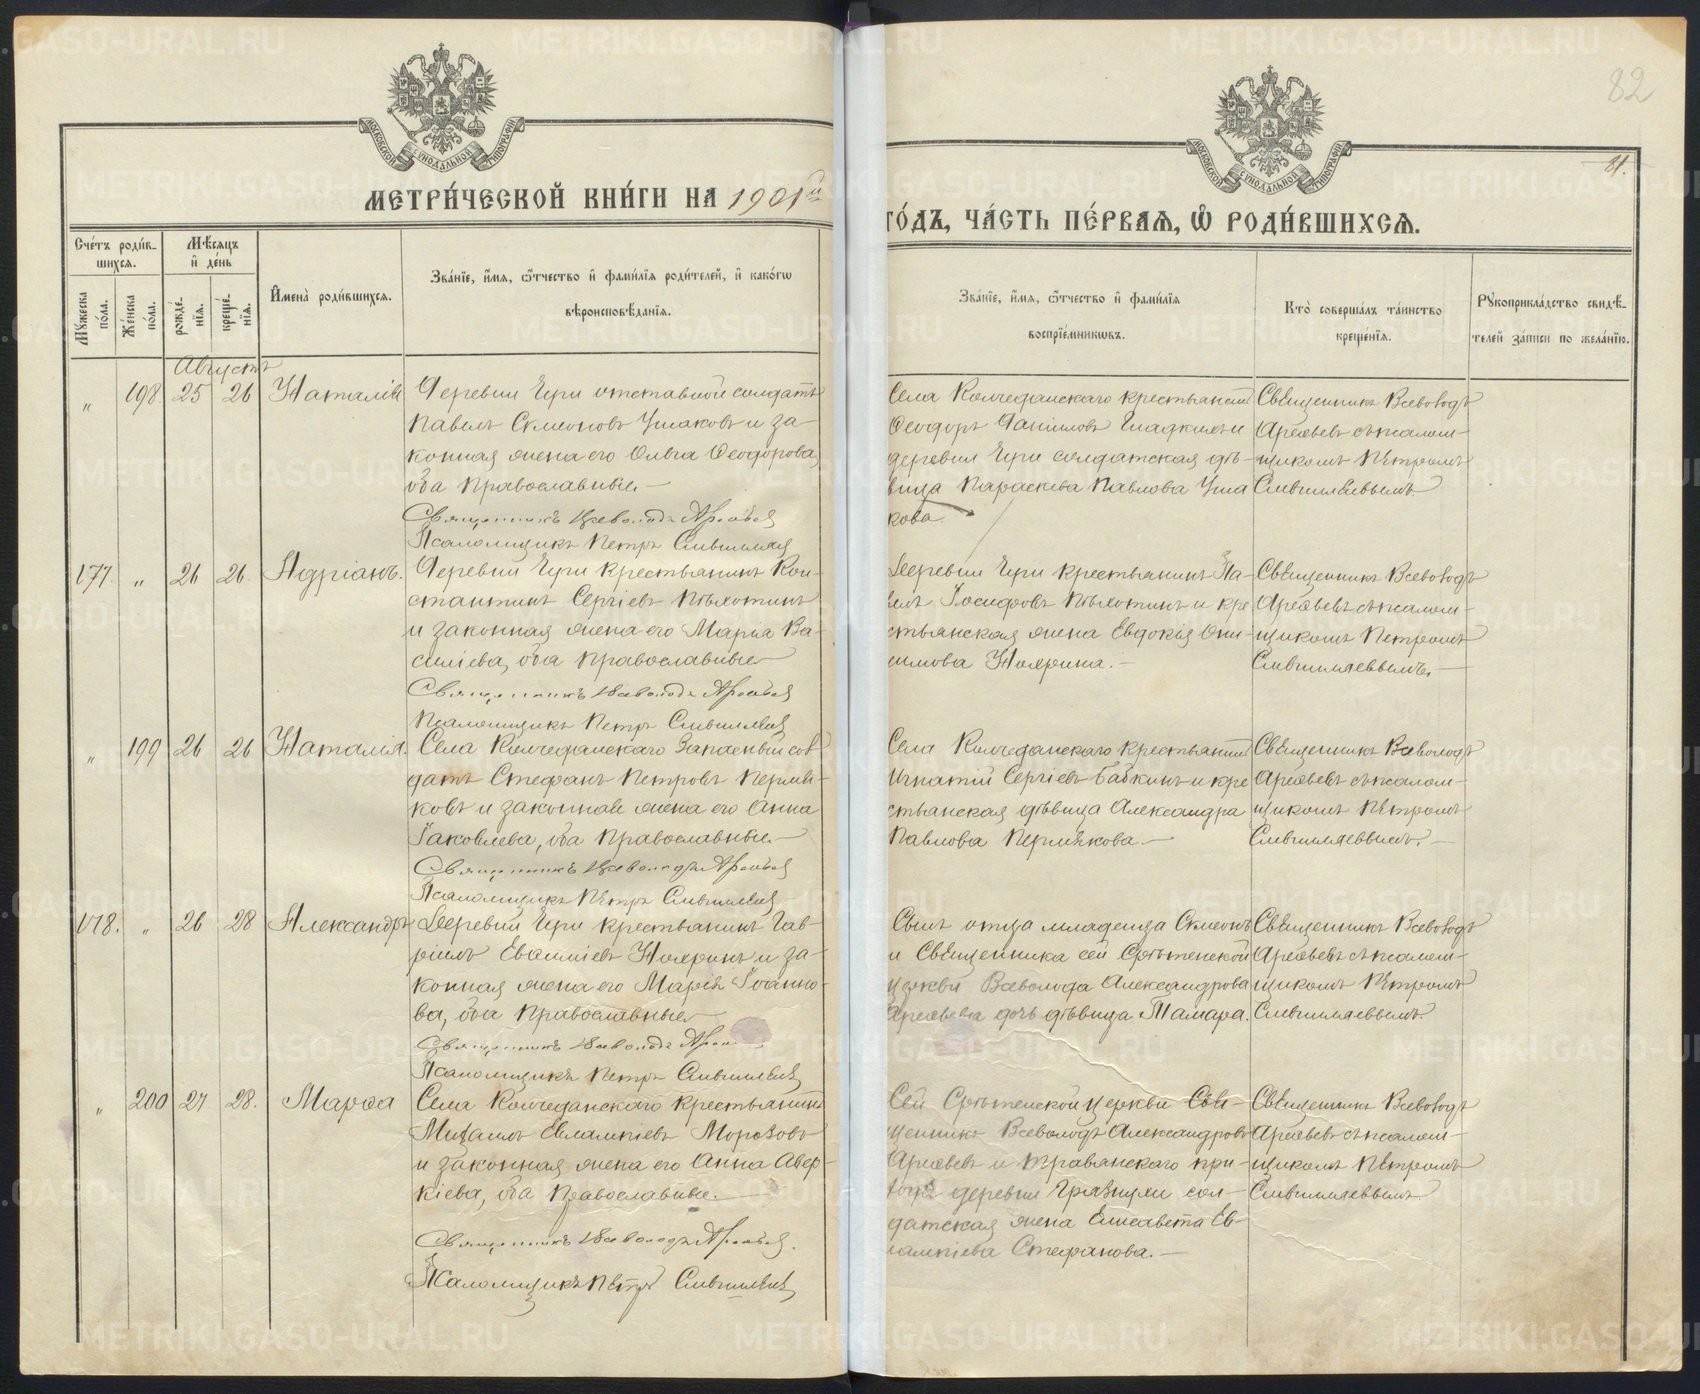 82
81.
МОСКОВСКОЙ СѴНОДАЛЬНОЙ ТИПОГРАФІИ
МОСКОВСКОЙ СѴНОДАЛЬНОЙ ТИПОГРАФІИ
МЕТРИ́ЧЕСКОЙ КНИ́ГИ НА 1901й
ГО́ДЪ, ЧА́СТЬ ПЕ́РВАѦ, Ѽ РОДИ́ВШИХСѦ.
Сче́тъ роди́в-
шихсѧ.
Мѣ́сѧцъ
и҆ де́нь
Мꙋ́жеска по́ла.
Же́нска по́ла.
рожде́-нїѧ.
креще́-нїѧ.
И҆мена̀ роди́вшихсѧ.
Зва́нїе, и҆́мѧ, ѻ҆́тчество и҆ фами́лїѧ роди́телей, и҆ како́гѡ
вѣроисповѣ́данїѧ.
Зва́нїе, и҆́мѧ, ѻ҆́тчество и҆ фами́лїѧ
воспрїе́мникѡвъ.
Кто̀ соверша́лъ та́инство
креще́нїѧ.
Рꙋкоприкла́дство свидѣ́-
телей за́писи по жела́нїю.
Августъ
" 198 25 26 Наталія
Деревни Чури отставной солдатъ
Павелъ Симеоновъ Ушаковъ и за-
конная жена его Ольга Ѳеодорова,
оба православные.
Священникъ Всеволодъ Арефьев
Псаломщикъ Петръ
Села Колчеданскаго крестьянинъ
Ѳеодоръ Даниловъ Гладкихъ и
деревни Чури солдатская дѣ-
вица Параскева Павлова Уша
кова.
Священникъ Всеволодъ
Арефьевъ съ псалом-
щикомъ Петромъ
177. " 26 26 Адріанъ.
Деревни Чури крестьянинъ Кон-
стантинъ Сергіевъ Пѣхотинъ
и законная жена его Марія Ва-
силіева, оба православные
Священникъ Всеволодъ Арефьев
Псаломщикъ Петръ
Деревни Чури крестьянинъ Па-
велъ Іосифовъ Пѣхотинъ и кре
стьянская жена Евдокія Они-
симова Ноярина.
Священникъ Всеволодъ
Арефьевъ съ псалом-
щикомъ Петромъ
" 199 26 26 Наталія.
Села Колчеданскаго запасный сол
датъ Стефанъ Петровъ Пермя-
ковъ и законная жена его Анна
Іаковлева, оба православные
Священникъ Всеволодъ Арефьев
Псаломщикъ Петръ
Села Колчеданскаго крестьянинъ
Игнатій Сергіевъ Бабкинъ и кре
стьянская дѣвица Александра
Павлова Пермякова.
Священникъ Всеволодъ
Арефьевъ съ псалом-
щикомъ Петромъ
178. " 26 28 Александръ
Деревни Чури крестьянинъ Гав-
ріилъ Евфиміевъ Нояринъ и за-
конная жена его Марія Іоанно-
ва, оба православные
Священникъ Всеволодъ
Псаломщикъ Петръ
Сынъ отца младенца Симеонъ
и священника сей Срѣтенской
церкви Всеволода Александрова
Арефьева дочь дѣвица Тамара.
Священникъ Всеволодъ
Арефьевъ съ псалом-
щикомъ Петромъ
" 200 27 28. Марѳа
Села Колчеданскаго крестьянинъ
Михаилъ Евлампіевъ Морозовъ
и законная жена его Анна Авер-
кіева, оба православные.
Священникъ Всеволодъ Арефьев.
Псаломщикъ Петръ
Сей Срѣтенской церкви свя-
щенникъ Всеволодъ Александровъ
Арефьевъ и Травянскаго при-
хода деревни Грязнухи сол-
датская жена Елисавета Ев-
лампіева Стефанова.
Священникъ Всеволодъ
Арефьевъ съ псалом-
щикомъ Петромъ
METRIKI.GASO-URAL.RU